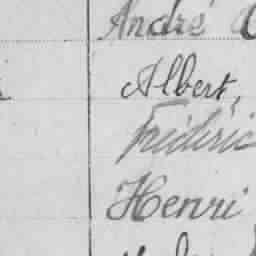 André
Albert,
Frédéric
Henri